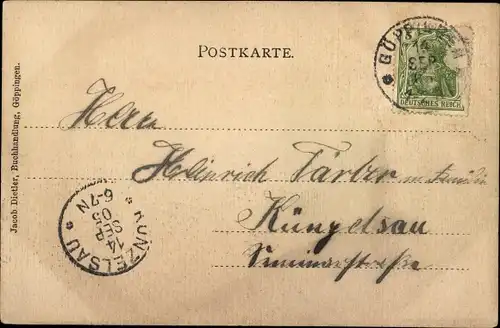 POSTKARTE.
GÖPPINGEN
SEP
DEUTSCHES REICH
Herrn
Heinrich Färber m. Familie
Künzelsau
Seminarstraße
KÜNZELSAU
14
SEP
05
6-7N
Jacob Dietler, Buchhandlung, Göppingen.